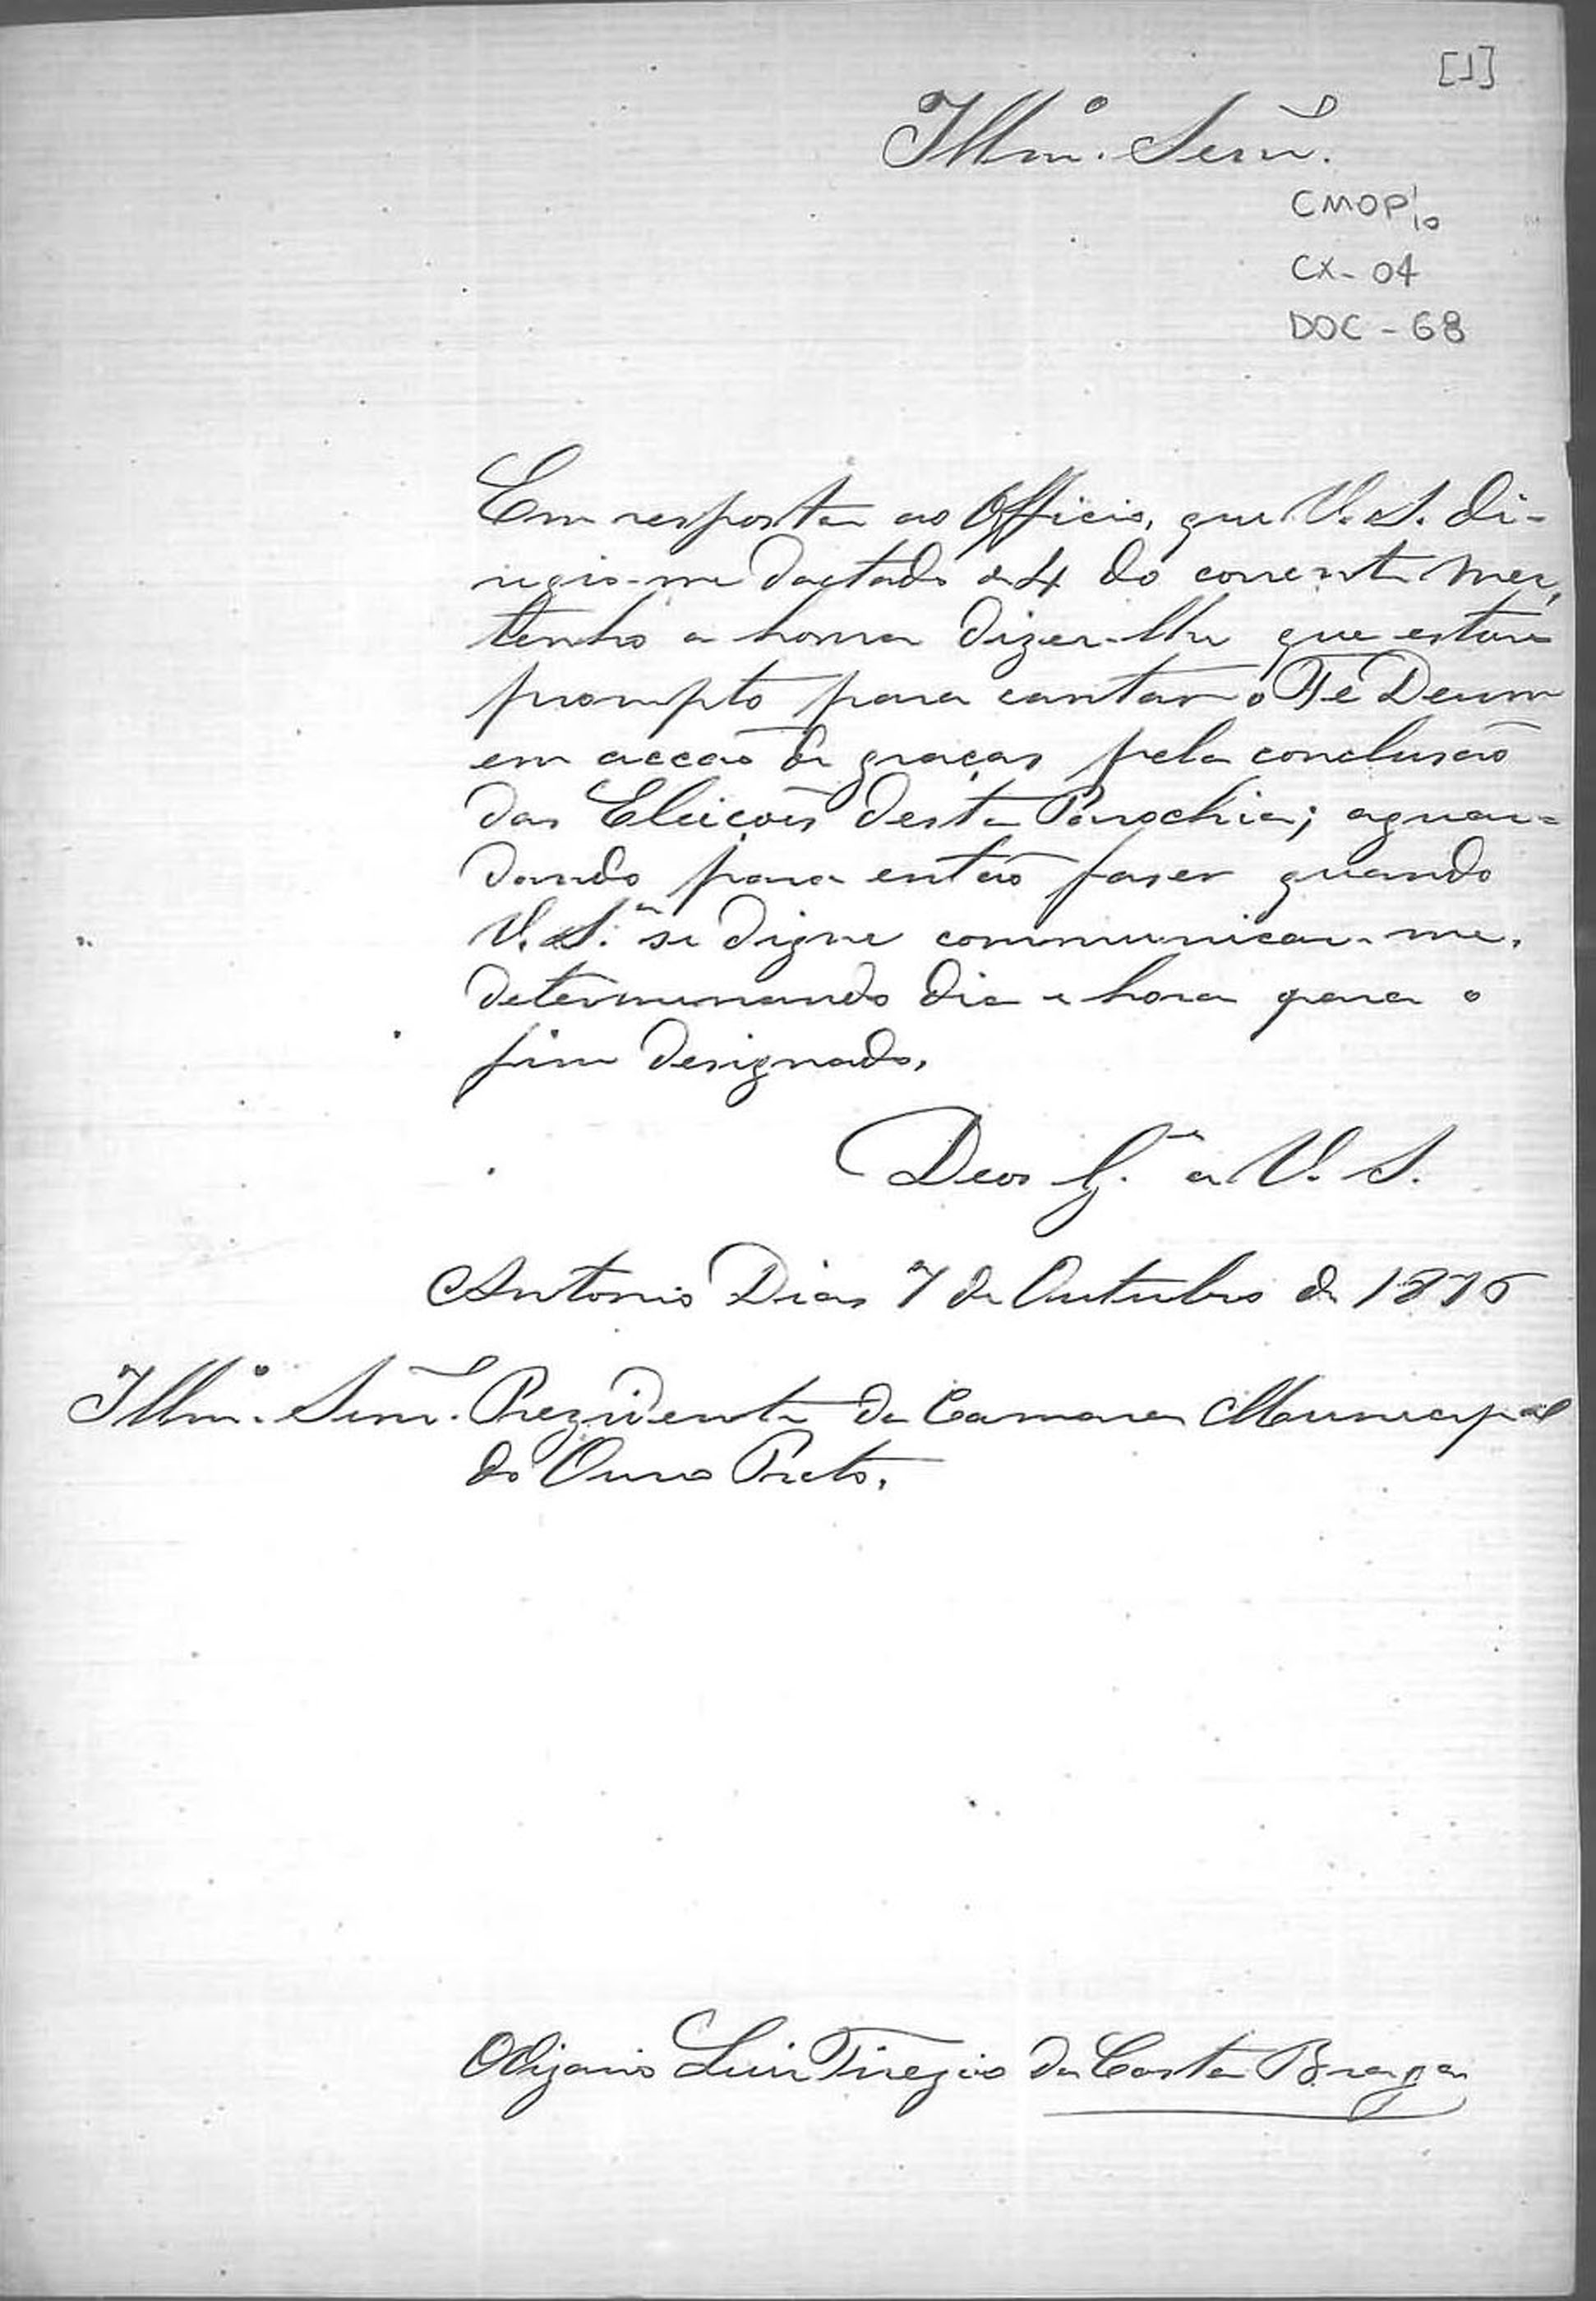 [1]
Illmº. Senr.
CMOP 1/10
CX - 04
DOC - 68
Em resposta ao Officio, que V. S. di-
regio-me dactado de 4 do corrente mez,
tenho a honra dizer-lhe que estou
prompto para cantar o Te Deum
em acção de graças pela conclusão
das Eleições desta Parochia; aguar=
dando para então faser quando
V. S.ª se digne communicar-me,
determinando dia e hora para o
fim designado.
Deos G.e a V. S.
Antonio Dias 7 de Outubro de 1876
Illmº. Senr. Prezidente da Camara Municipal
do Ouro Preto.
O Vigario Luis Tirezio da Costa Braga